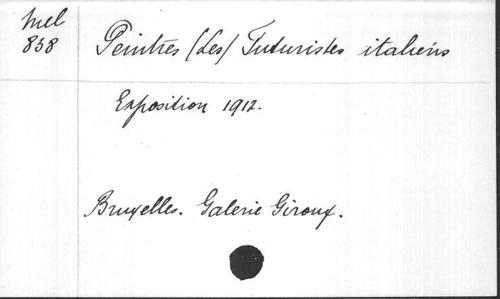 Mel
838
Peintres (Les) Futuristes italiens
Exposition 1912.
Bruxelles. Galerie Giroux.